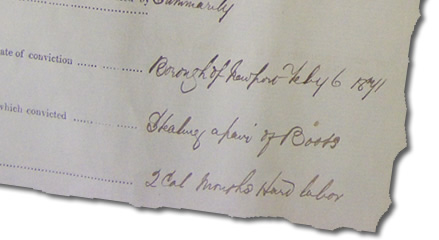 by Summarily
ate of conviction ...... Borough of Newport Feby 6 1871
which convicted ...... Stealing a pair of Boots
2 Cal Months Hard labor